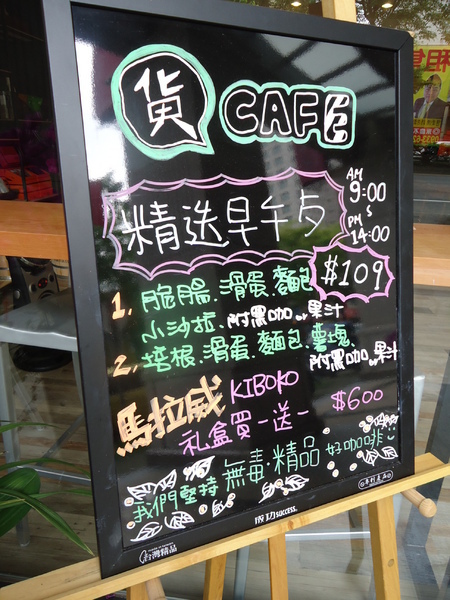 貨 CAFE
精选早午歺
AM 9:00
PM 14:00
$109
1. 脆腸.滑蛋.麵包
小沙拉.附黑咖or果汁
2. 培根.滑蛋.麵包.薯塊.
附黑咖or果汁
馬拉威 KIBOKO
礼盒買一送一 $600
我們堅持無毒精品好咖啡
專利產品
成功 success
台灣精品